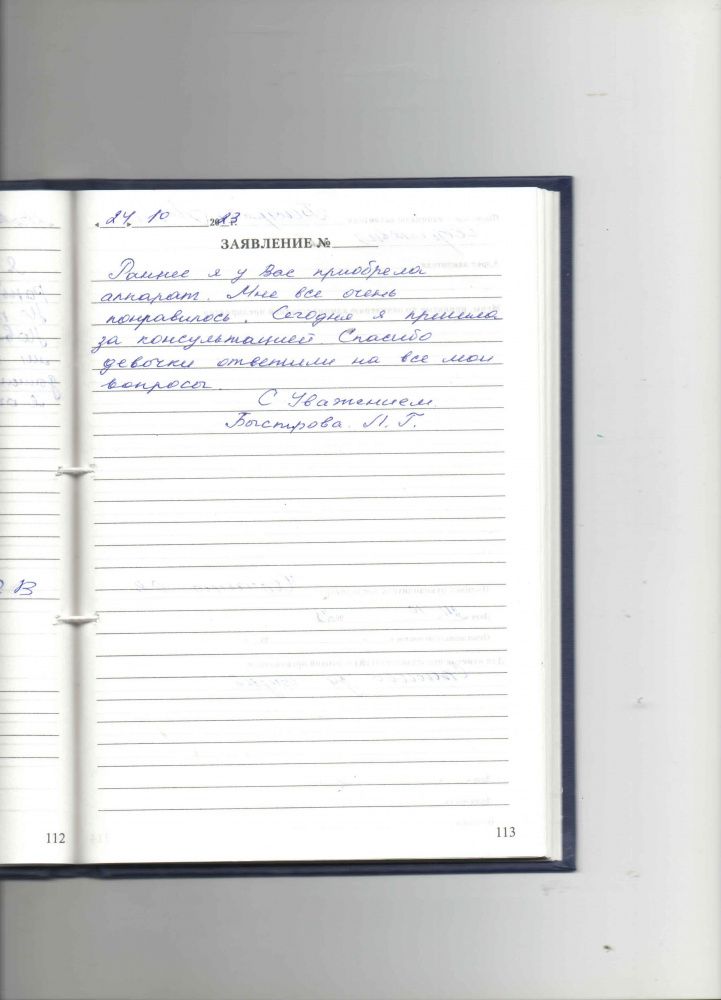 « 24 » 10 2023 г.
ЗАЯВЛЕНИЕ №
Раннее я у Вас приобрела
аппарат. Мне все очень
понравилось. Сегодня я пришла
за консультацией. Спасибо
девочки ответили на все мои
вопросы.
С Уважением.
Быстрова. Л. Г.
В
112
113